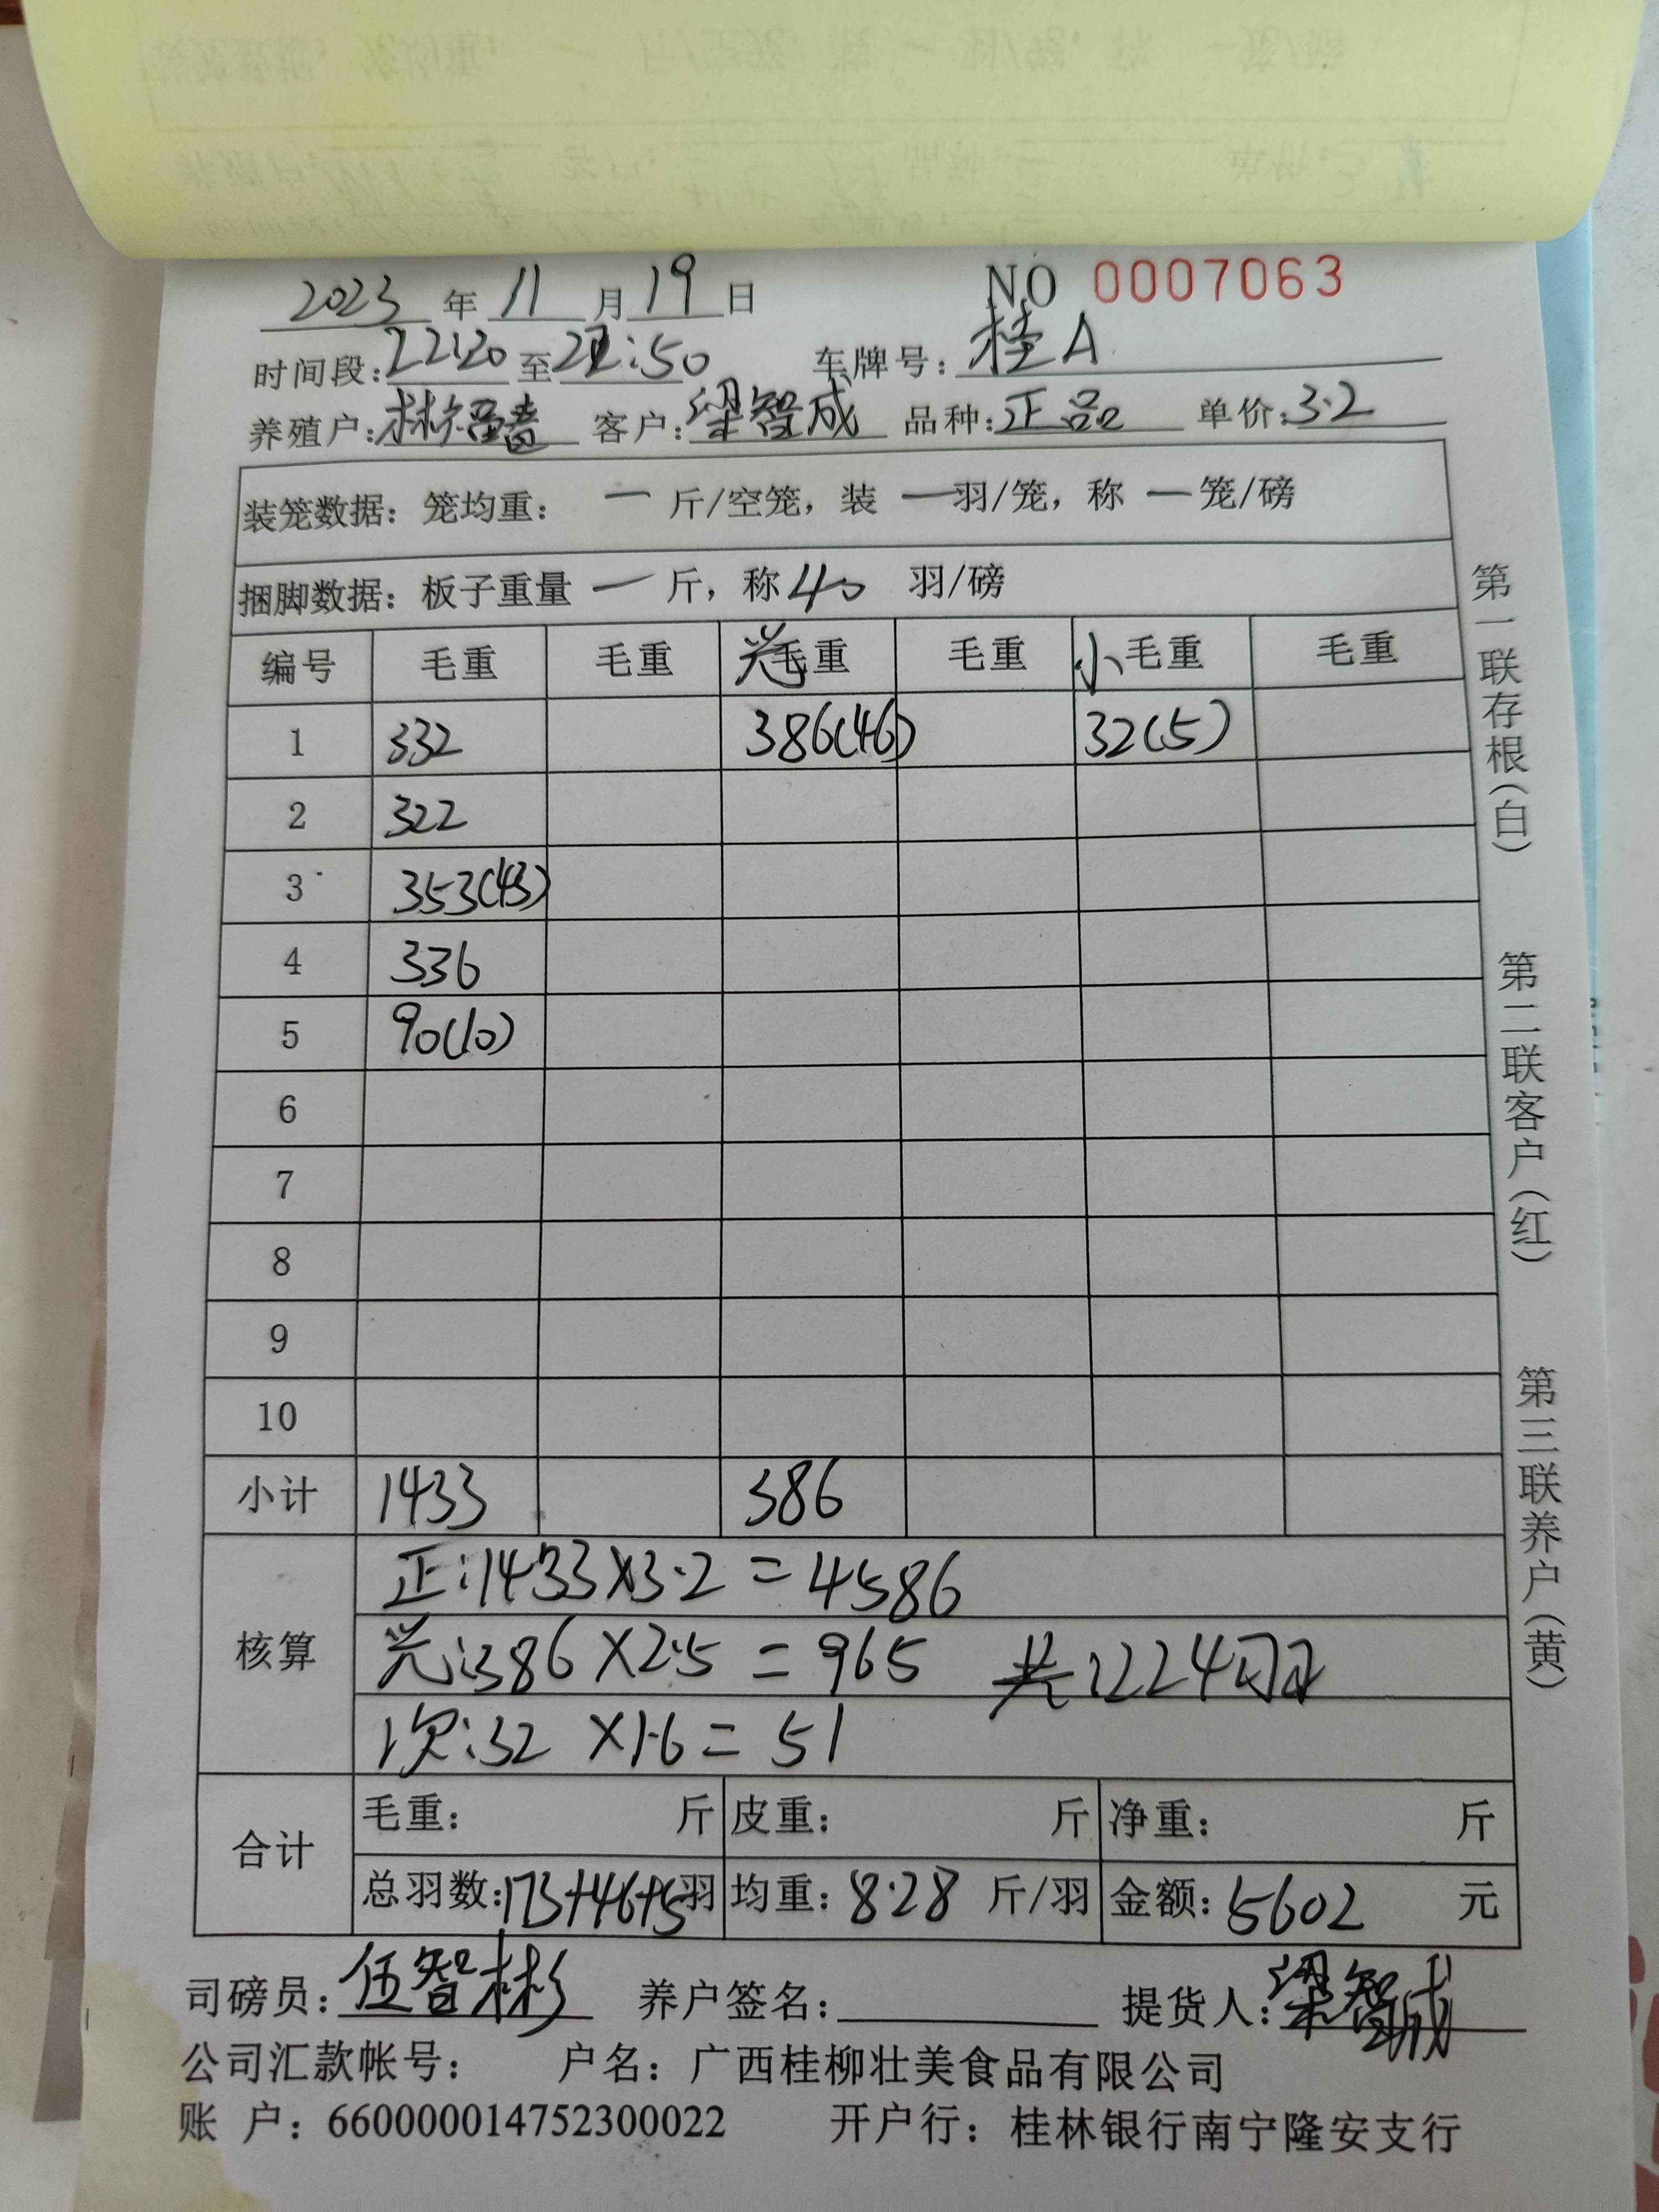 2023 年 11 月 19 日 NO 0007063
时间段:22:20 至 22:50 车牌号:桂A
养殖户:林福 客户:梁智成 品种:正品 单价:3.2
装笼数据:笼均重: 一 斤/空笼,装 一 羽/笼,称 一 笼/磅
捆脚数据:板子重量 一 斤,称 40 羽/磅
编号 毛重 毛重 光毛重 毛重 小毛重 毛重
1 332 386(46) 32(5)
2 322
3 353(43)
4 336
5 90(10)
6
7
8
9
10
小计 1433 386
核算 正:1433×3.2=4586
光:386×2.5=965 共:224羽
次:32×1.6=51
合计 毛重: 斤 皮重: 斤 净重: 斤
总羽数:173+46+5羽 均重:8.28 斤/羽 金额:5602 元
司磅员:伍智彬 养户签名: 提货人:梁智成
公司汇款帐号: 户名:广西桂柳壮美食品有限公司
账 户:660000014752300022 开户行:桂林银行南宁隆安支行
第一联存根(白) 第二联客户(红) 第三联养户(黄)